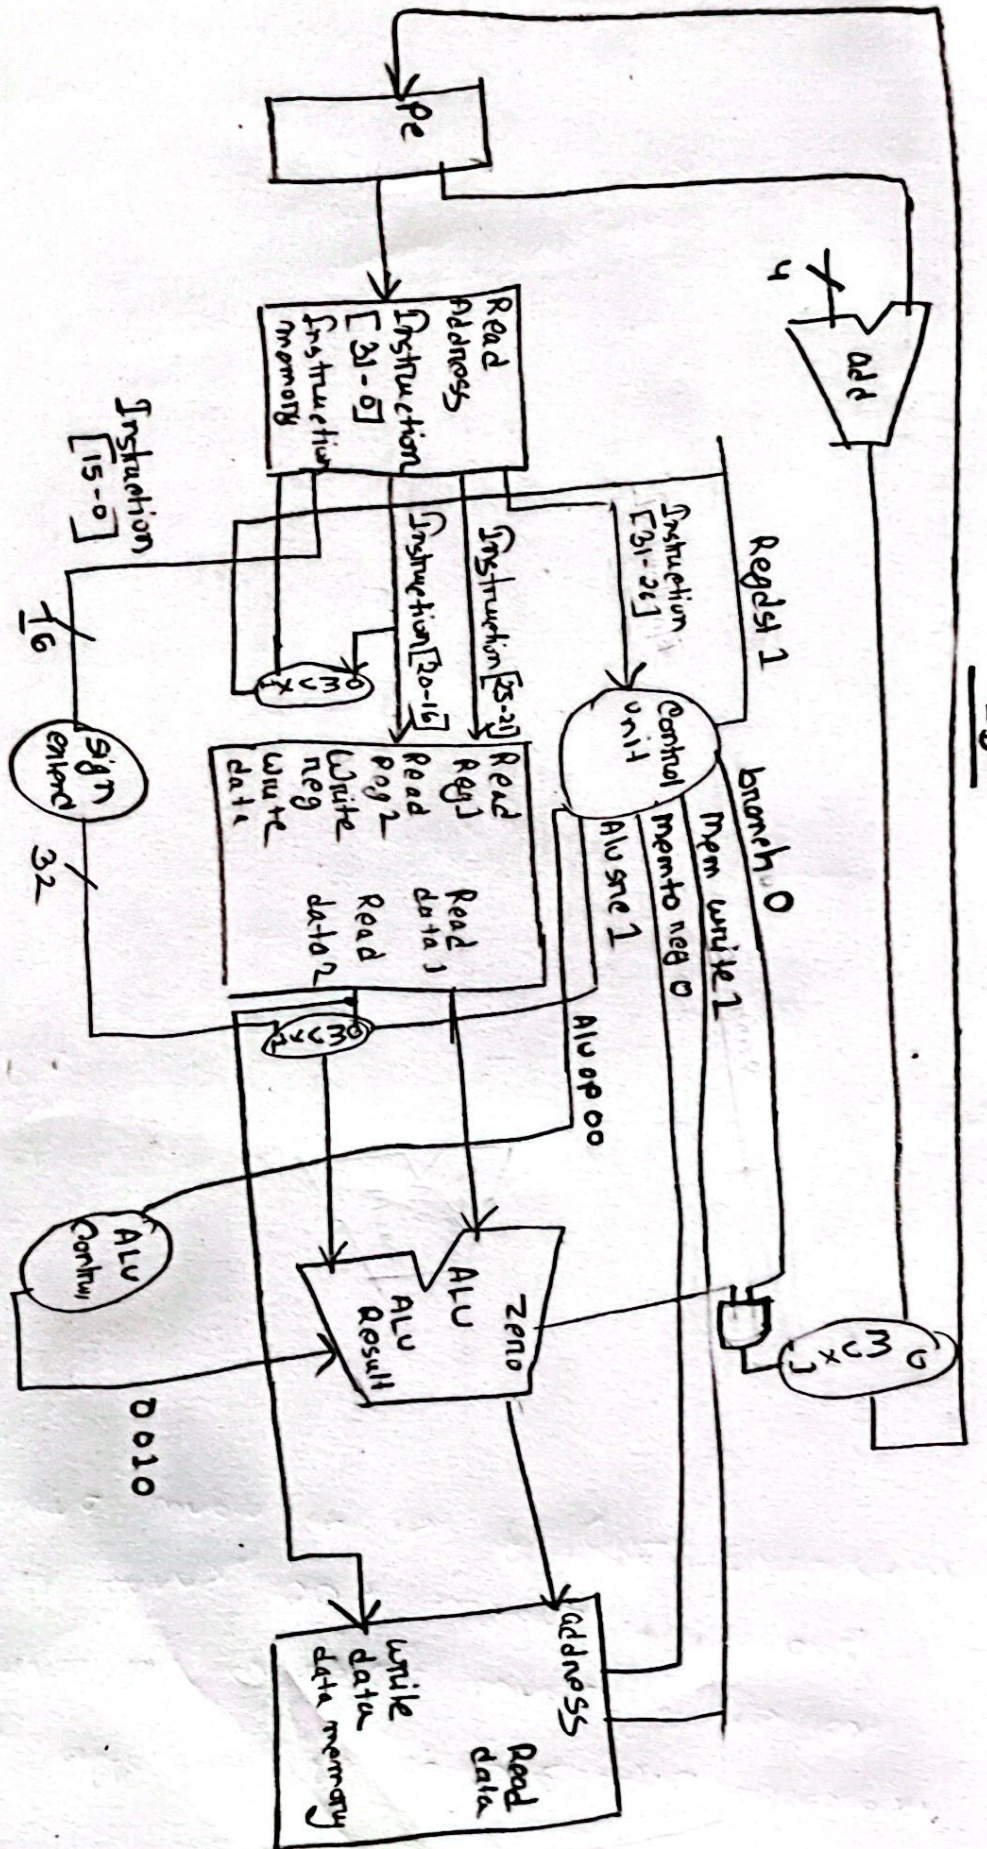 Pc
4
add
Read
Address
Instruction
[31-0]
Instruction
memory
Instruction
[15-0]
16
Sign
extend
32
Instruction
[31-26]
Instruction [25-21]
Instruction [20-16]
0
M
U
X
1
Regdst 1
Control
unit
branch 0
Mem write 1
Memtoreg 0
Alusrc 1
Aluop 00
Read
Reg1
Read
Reg2
Write
reg
Write
data
Read
data 1
Read
data 2
0
M
U
X
1
ALU
Control
0010
Zero
ALU
ALU
Result
0
M
U
X
1
address
Read
data
Write
data
data memory